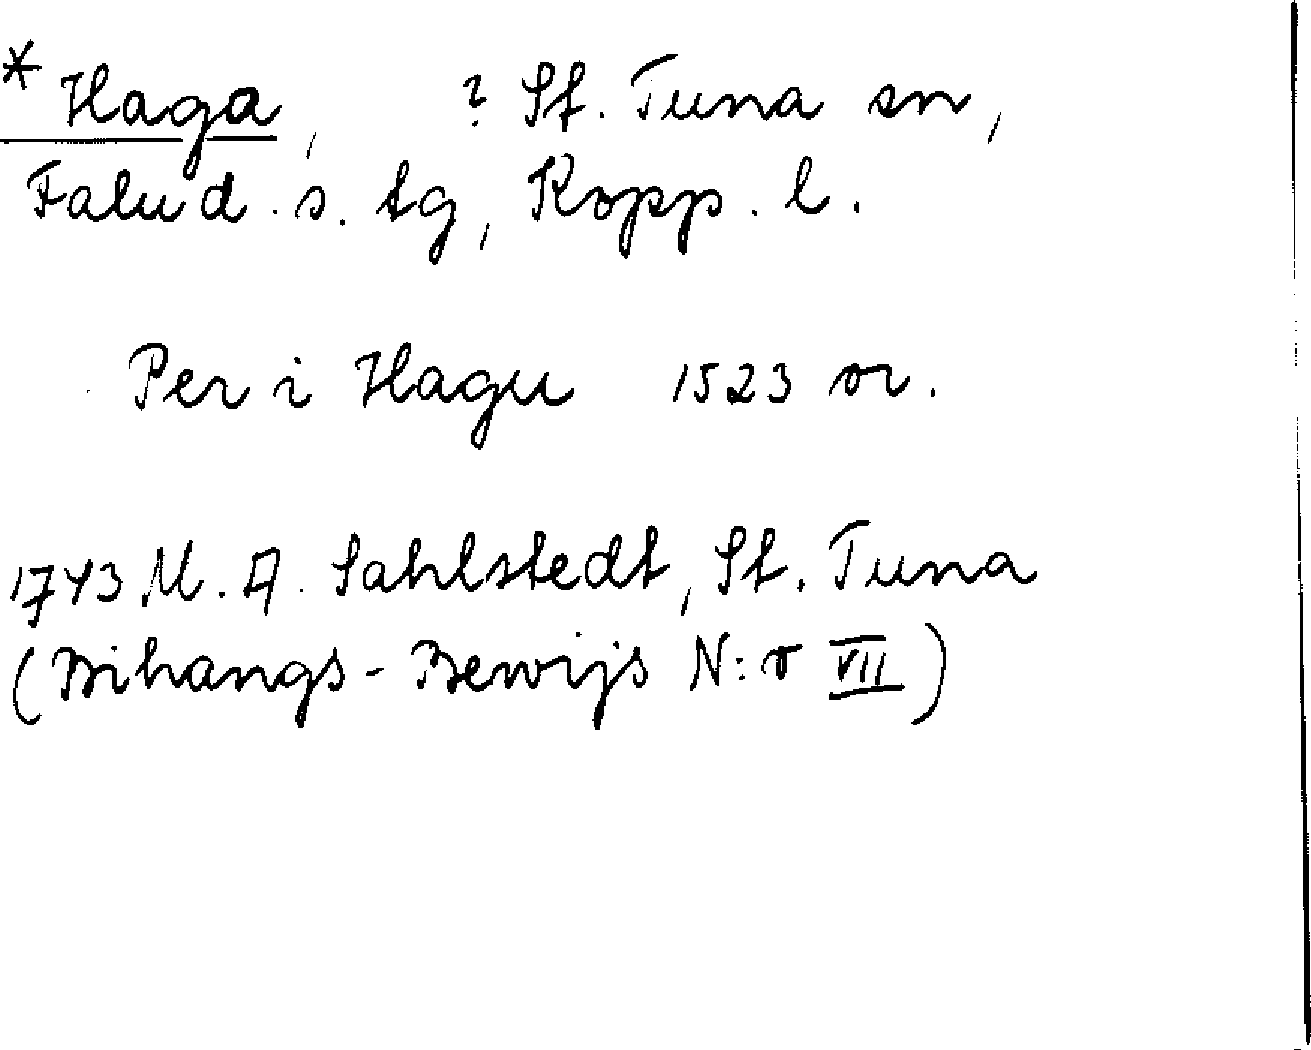 * Haga, ? St. Tuna sn,
Falu d. s. tg, Kopp. l.
Per i Hagu 1523 or.
1743 M. A. Sahlstedt, St. Tuna
(Bihangs-Bewijs N:o VII)